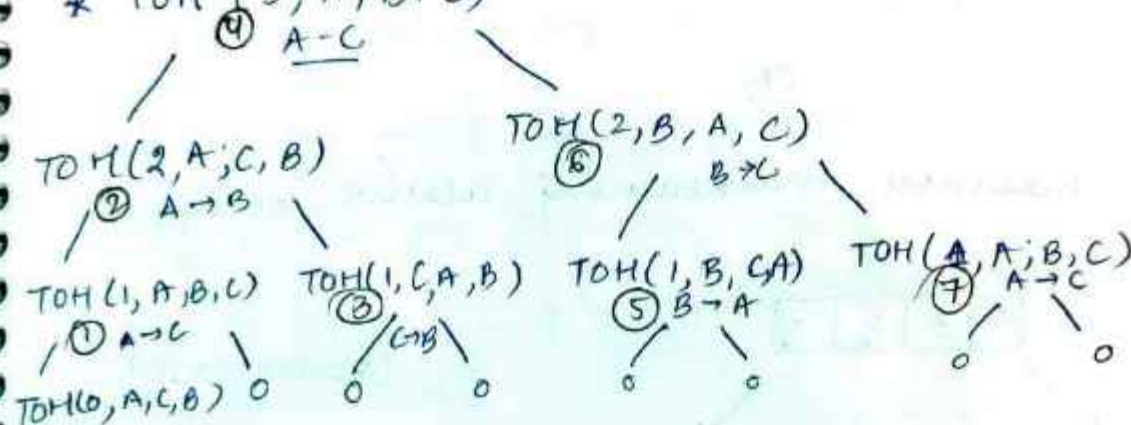 * TOH (3, A, B, C)
④ A-C
TOH(2,A,C,B)
② A→B
TOH(2,B,A,C)
⑥ B→C
TOH(1,A,B,C)
① A→C
TOH(1,C,A,B)
③ C→B
TOH(1,B,C,A)
⑤ B→A
TOH(1,A,B,C)
⑦ A→C
TOH(0,A,C,B) 0 0 0 0 0 0 0